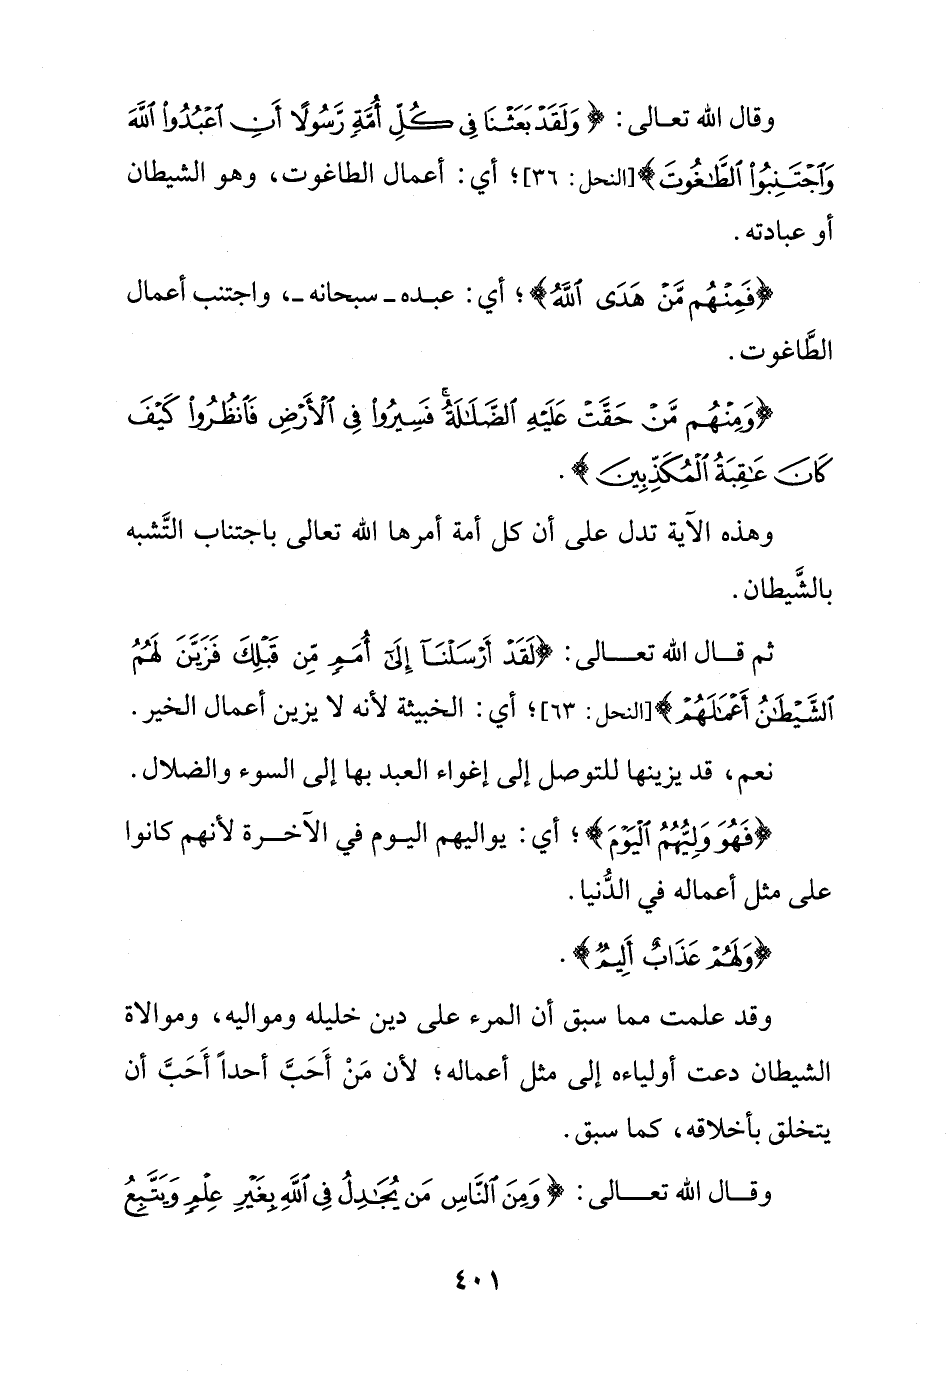 وقال الله تعالى: ﴿ وَلَقَدْ بَعَثْنَا فِى كُلِّ أُمَّةٍ رَّسُولًا أَنِ ٱعْبُدُوا۟ ٱللَّهَ
وَٱجْتَنِبُوا۟ ٱلطَّـٰغُوتَ ﴾[النحل: ٣٦]؛ أي: أعمال الطاغوت، وهو الشيطان
أو عبادته.
﴿فَمِنْهُم مَّنْ هَدَى ٱللَّهُ﴾؛ أي: عبده ـ سبحانه ـ، واجتنب أعمال
الطَّاغوت.
﴿وَمِنْهُم مَّنْ حَقَّتْ عَلَيْهِ ٱلضَّلَـٰلَةُ ۚ فَسِيرُوا۟ فِى ٱلْأَرْضِ فَٱنظُرُوا۟ كَيْفَ
كَانَ عَـٰقِبَةُ ٱلْمُكَذِّبِينَ ﴾.
وهذه الآية تدل على أن كل أمة أمرها الله تعالى باجتناب التَّشبه
بالشَّيطان.
ثم قال الله تعالى: ﴿لَقَدْ أَرْسَلْنَآ إِلَىٰٓ أُمَمٍ مِّن قَبْلِكَ فَزَيَّنَ لَهُمُ
ٱلشَّيْطَـٰنُ أَعْمَـٰلَهُمْ ﴾[النحل: ٦٣]؛ أي: الخبيثة لأنه لا يزين أعمال الخير.
نعم، قد يزينها للتوصل إلى إغواء العبد بها إلى السوء والضلال.
﴿فَهُوَ وَلِيُّهُمُ ٱلْيَوْمَ﴾؛ أي: يواليهم اليوم في الآخرة لأنهم كانوا
على مثل أعماله في الدُّنيا.
﴿وَلَهُمْ عَذَابٌ أَلِيمٌ﴾.
وقد علمت مما سبق أن المرء على دين خليله ومواليه، وموالاة
الشيطان دعت أولياءه إلى مثل أعماله؛ لأن مَنْ أَحَبَّ أحداً أَحَبَّ أن
يتخلق بأخلاقه، كما سبق.
وقال الله تعالى: ﴿ وَمِنَ ٱلنَّاسِ مَن يُجَـٰدِلُ فِى ٱللَّهِ بِغَيْرِ عِلْمٍ وَيَتَّبِعُ
٤٠١